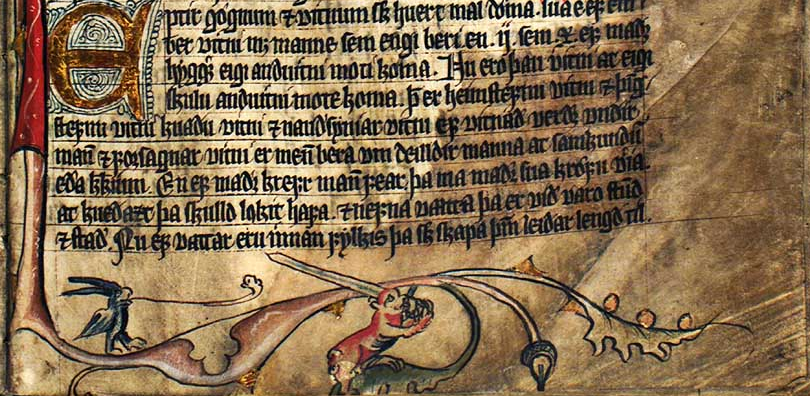 ptir gognum ⁊ vitnum sk huert mal dǿma. sua e eꝼ ein
ber vitni mꝫ manne sem engi beri. en .ij. sem .x. eꝼ madr
hyggr eigi anduitni moti koma. Nu ero þau vitni at eigi
skulu anduitni mote koma. þer heimsteꝼnu vitni ⁊ þing
steꝼnu vitni kuadu vitni ⁊ naudsyniar vitni eꝼ vitnad verdr vndir
man̄ ⁊ ꝼorsagnar vitni er men̄ bera vm deilldir manna at samkundu
eda kirkiu. En eꝼ madr kreꝼr man̄ ꝼear, þa ma madr sua kroꝼu
at kuedazt þa skulld lokit haꝼa. ⁊ neꝼna vatta þa er vid varo stund
⁊ stad. Nu eꝼ vattar eru innan ꝼylkis þa sk skapa þm̄ leidar lengd til.